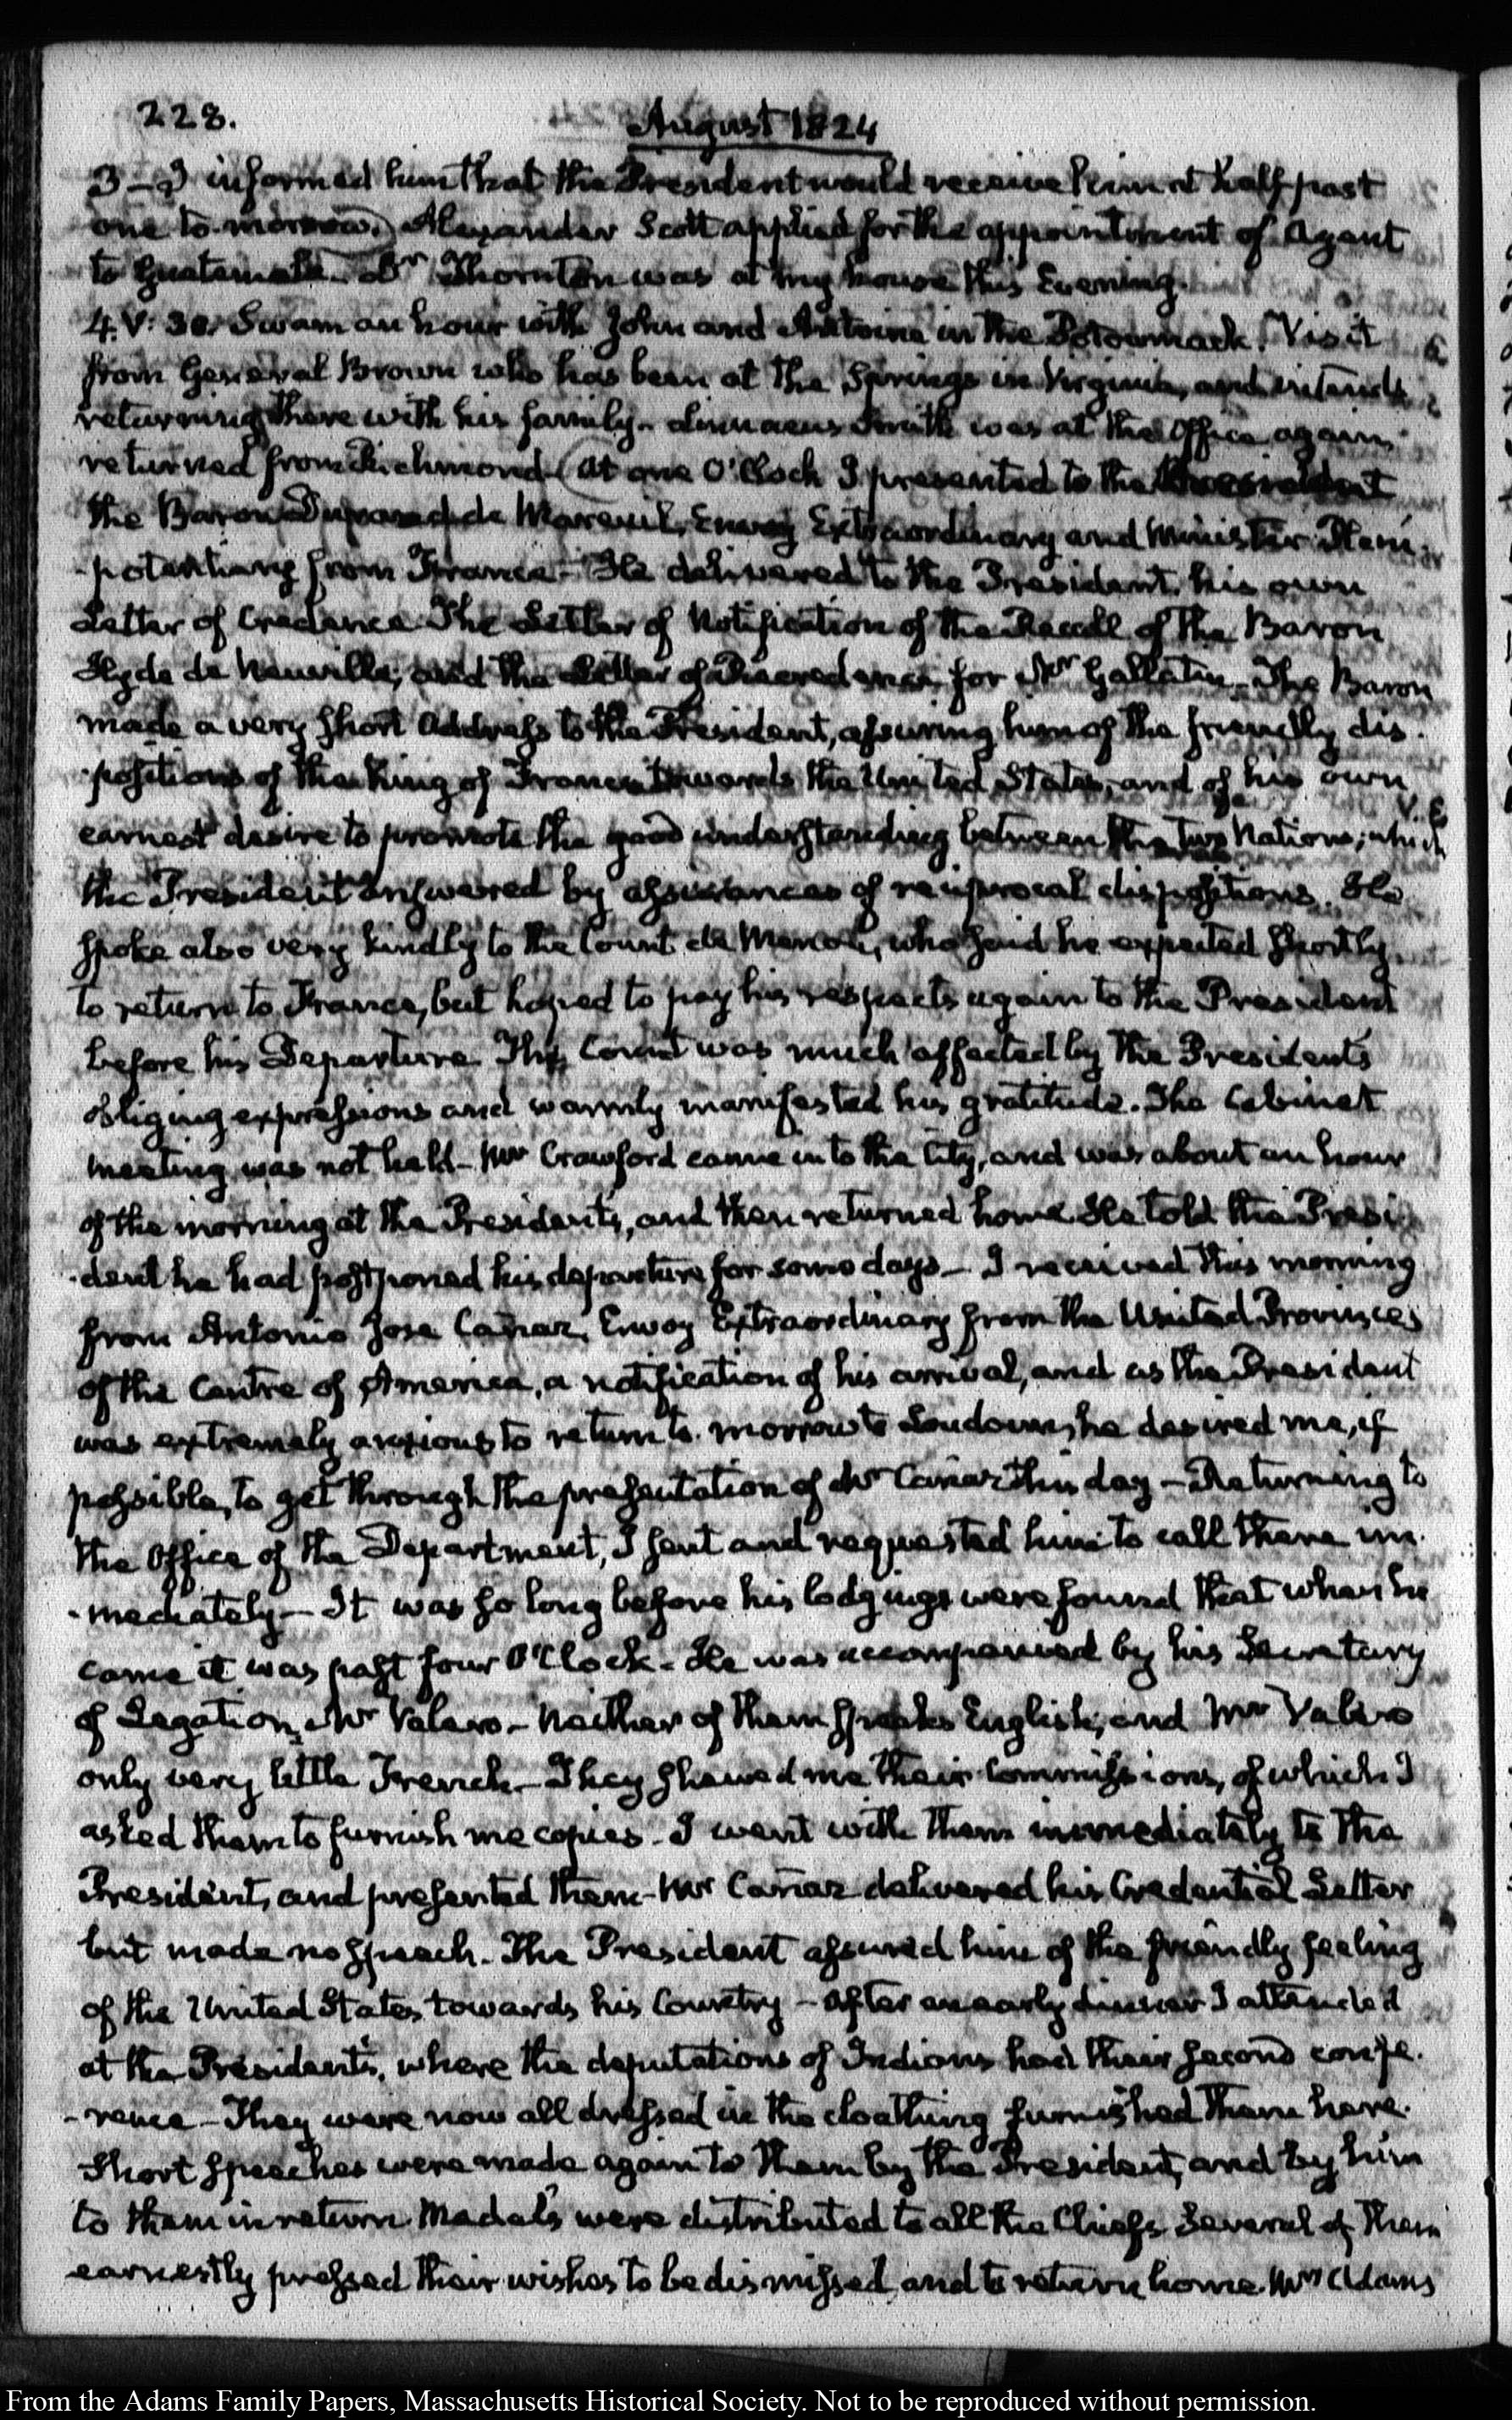 228.
August 1824
3 — I informed him that the President would receive him at half past
one to-morrow. Alexander Scott applied for the appointment of Agent
to Guatemala. Dr Thornton was at my house this Evening.
4. V: 30. Swam an hour with John and Antoine in the Potowmack. Visit
from General Brown who has been at the Springs in Virginia, and intends
returning there with his family. Linnaeus Smith was at the Office again
returned from Richmond (At one O'Clock I presented to the President
the Baron Durand de Mareuil, Envoy Extraordinary and Minister Pleni-
-potentiary from France — He delivered to the President, his own
Letter of Credence. The Letter of Notification of the Recall of the Baron
Hyde de Neuville; and the Letter of Recredence for Mr Gallatin — The Baron
made a very short Address to the President, assuring him of the friendly dis-
-positions of the King of France towards the United States, and of his own
earnest desire to promote the good understanding between the two Nations; which
the President answered by assurances of reciprocal dispositions. He
spoke also very kindly to the Count de Menou, who said he expected shortly
to return to France, but hoped to pay his respects again to the President
before his Departure. The Count was much affected by the President's
obliging expressions and warmly manifested his gratitude. The Cabinet
meeting was not held — Mr Crawford came in to the City, and was about an hour
of the morning at the President's, and then returned home. He told the Presi-
-dent he had postponed his departure for some days — I received this morning
from Antonio Jose Cañaz, Envoy Extraordinary from the United Provinces
of the Centre of America, a notification of his arrival, and as the President
was extremely anxious to return to-morrow to Loudoun, he desired me, if
possible, to get through the presentation of Mr Cañaz this day — Returning to
the Office of the Department, I sent and requested him to call there im-
-mediately — It was so long before his lodgings were found that when he
came it was past four O'Clock — He was accompanied by his Secretary
of Legation, Mr Valero — Neither of them speaks English, and Mr Valero
only very little French — They shewed me their Commissions, of which I
asked them to furnish me copies — I went with them immediately to the
President, and presented them — Mr Cañaz delivered his Credential Letter
but made no speech. The President assured him of the friendly feeling
of the United States towards his Country — After an early dinner I attended
at the President's, where the deputations of Indians had their second confe-
-rence — They were now all dressed in the cloathing furnished them here.
Short speeches were made again to them by the President, and by him
to them in return. Medals were distributed to all the Chiefs. Several of them
earnestly pressed their wishes to be dismissed, and to return home. Mrs Adams
From the Adams Family Papers, Massachusetts Historical Society. Not to be reproduced without permission.